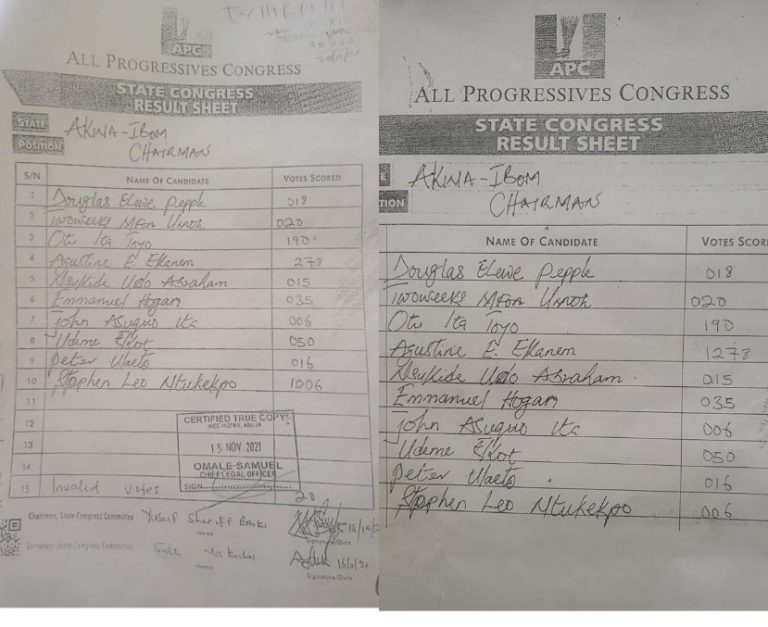 APC
ALL PROGRESSIVES CONGRESS
STATE CONGRESS
RESULT SHEET
STATE AKWA-IBOM
POSITION CHAIRMAN
S/N NAME OF CANDIDATE VOTES SCORED
1 Douglas Elewe Pepple 018
2 Twoweeks Mfon Umoh 020
3 Otu Ita Toyo 190
4 Agustine E. Ekanem 278
5 Udo Abraham 015
6 Emmanuel Hogan 035
7 John Asuquo Ita 006
8 Udeme Ekot 050
9 Peter 016
10 Stephen Leo Ntukekpo 1006
11
12
13
14
15 Invalid votes 20
CERTIFIED TRUE COPY
INEC HQTRS, ABUJA
15 NOV 2021
OMALE-SAMUEL
CHIEF LEGAL OFFICER
SIGN
Chairman, State Congress Committee Yusuf
Name Signature/Date
Secretary, State Congress Committee
Name
Signature/Date
APC
ALL PROGRESSIVES CONGRESS
STATE CONGRESS
RESULT SHEET
E AKWA-IBOM
TION CHAIRMAN
NAME OF CANDIDATE VOTES SCORE
Douglas Elewe Pepple 018
Twoweeks Mfon Umoh 020
Otu Ita Toyo 190
Agustine E. Ekanem 1278
Udo Abraham 015
Emmanuel Hogan 035
John Asuquo Ita 006
Udeme Ekot 050
Peter 016
Stephen Leo Ntukekpo 006